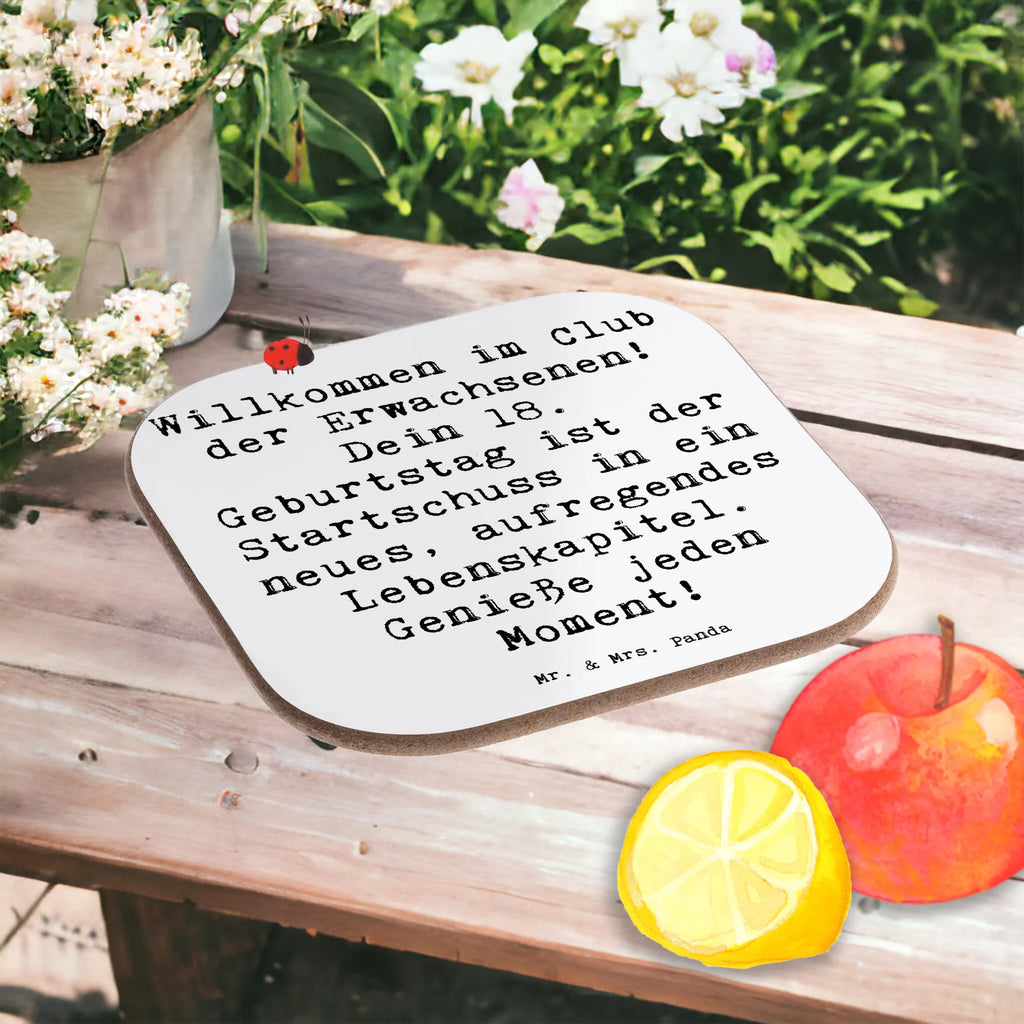 Willkommen im Club
der Erwachsenen!
Dein 18.
Geburtstag ist der
Startschuss in ein
neues, aufregendes
Lebenskapitel.
Genieße jeden
Moment!
Mr. & Mrs. Panda